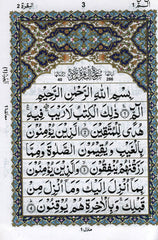 الٓمّٓ ١ 3 البقرة ٢
بِسْمِ اللّٰهِ الرَّحْمٰنِ الرَّحِيْمِ
الٓمّٓ ذٰلِكَ الْكِتٰبُ لَا رَيْبَ فِيْهِ
هُدًى لِّلْمُتَّقِيْنَ الَّذِيْنَ يُؤْمِنُوْنَ
بِالْغَيْبِ وَيُقِيْمُوْنَ الصَّلٰوةَ وَمِمَّا
رَزَقْنٰهُمْ يُنْفِقُوْنَ وَالَّذِيْنَ يُؤْمِنُوْنَ
بِمَآ اُنْزِلَ اِلَيْكَ وَمَآ اُنْزِلَ مِنْ
قَبْلِكَ وَبِالْاٰخِرَةِ هُمْ يُوْقِنُوْنَ
منزل ١